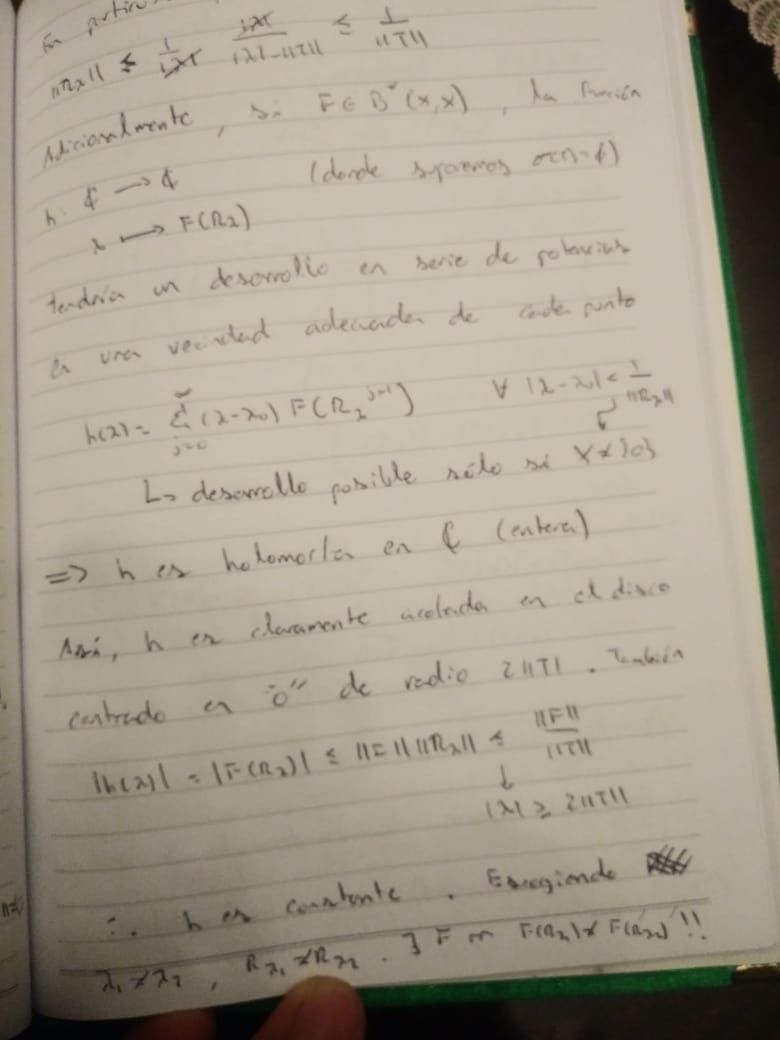 En particular
||Rλ|| ≤ 1/|λ| |λ|/(|λ|-||T||) ≤ 1/||T||
Adicionalmente, si F ∈ B*(X,X), la función
h: ℂ → ℂ (donde suponemos σ(T)=∅)
λ ↦ F(Rλ)
tendría un desarrollo en serie de potencias
en una vecindad adecuada de cada punto
h(λ) = Σ_{j=0}^∞ (λ-λ₀) F(R_λ^{j+1}) ∀ |λ-λ₀| < 1/||Rλ||
↳ desarrollo posible sólo si X≠{0}
=> h es holomorfa en ℂ (entera)
Así, h es claramente acotada en el disco
centrado en "0" de radio 2||T||. También
|h(λ)| = |F(Rλ)| ≤ ||F|| ||Rλ|| ≤ ||F||/||T||
↓
|λ| ≥ 2||T||
∴ h es constante. Escogiendo
λ₁≠λ₂, Rλ₁≠Rλ₂. ∃ F F(Rλ₁)≠F(Rλ₂) !!